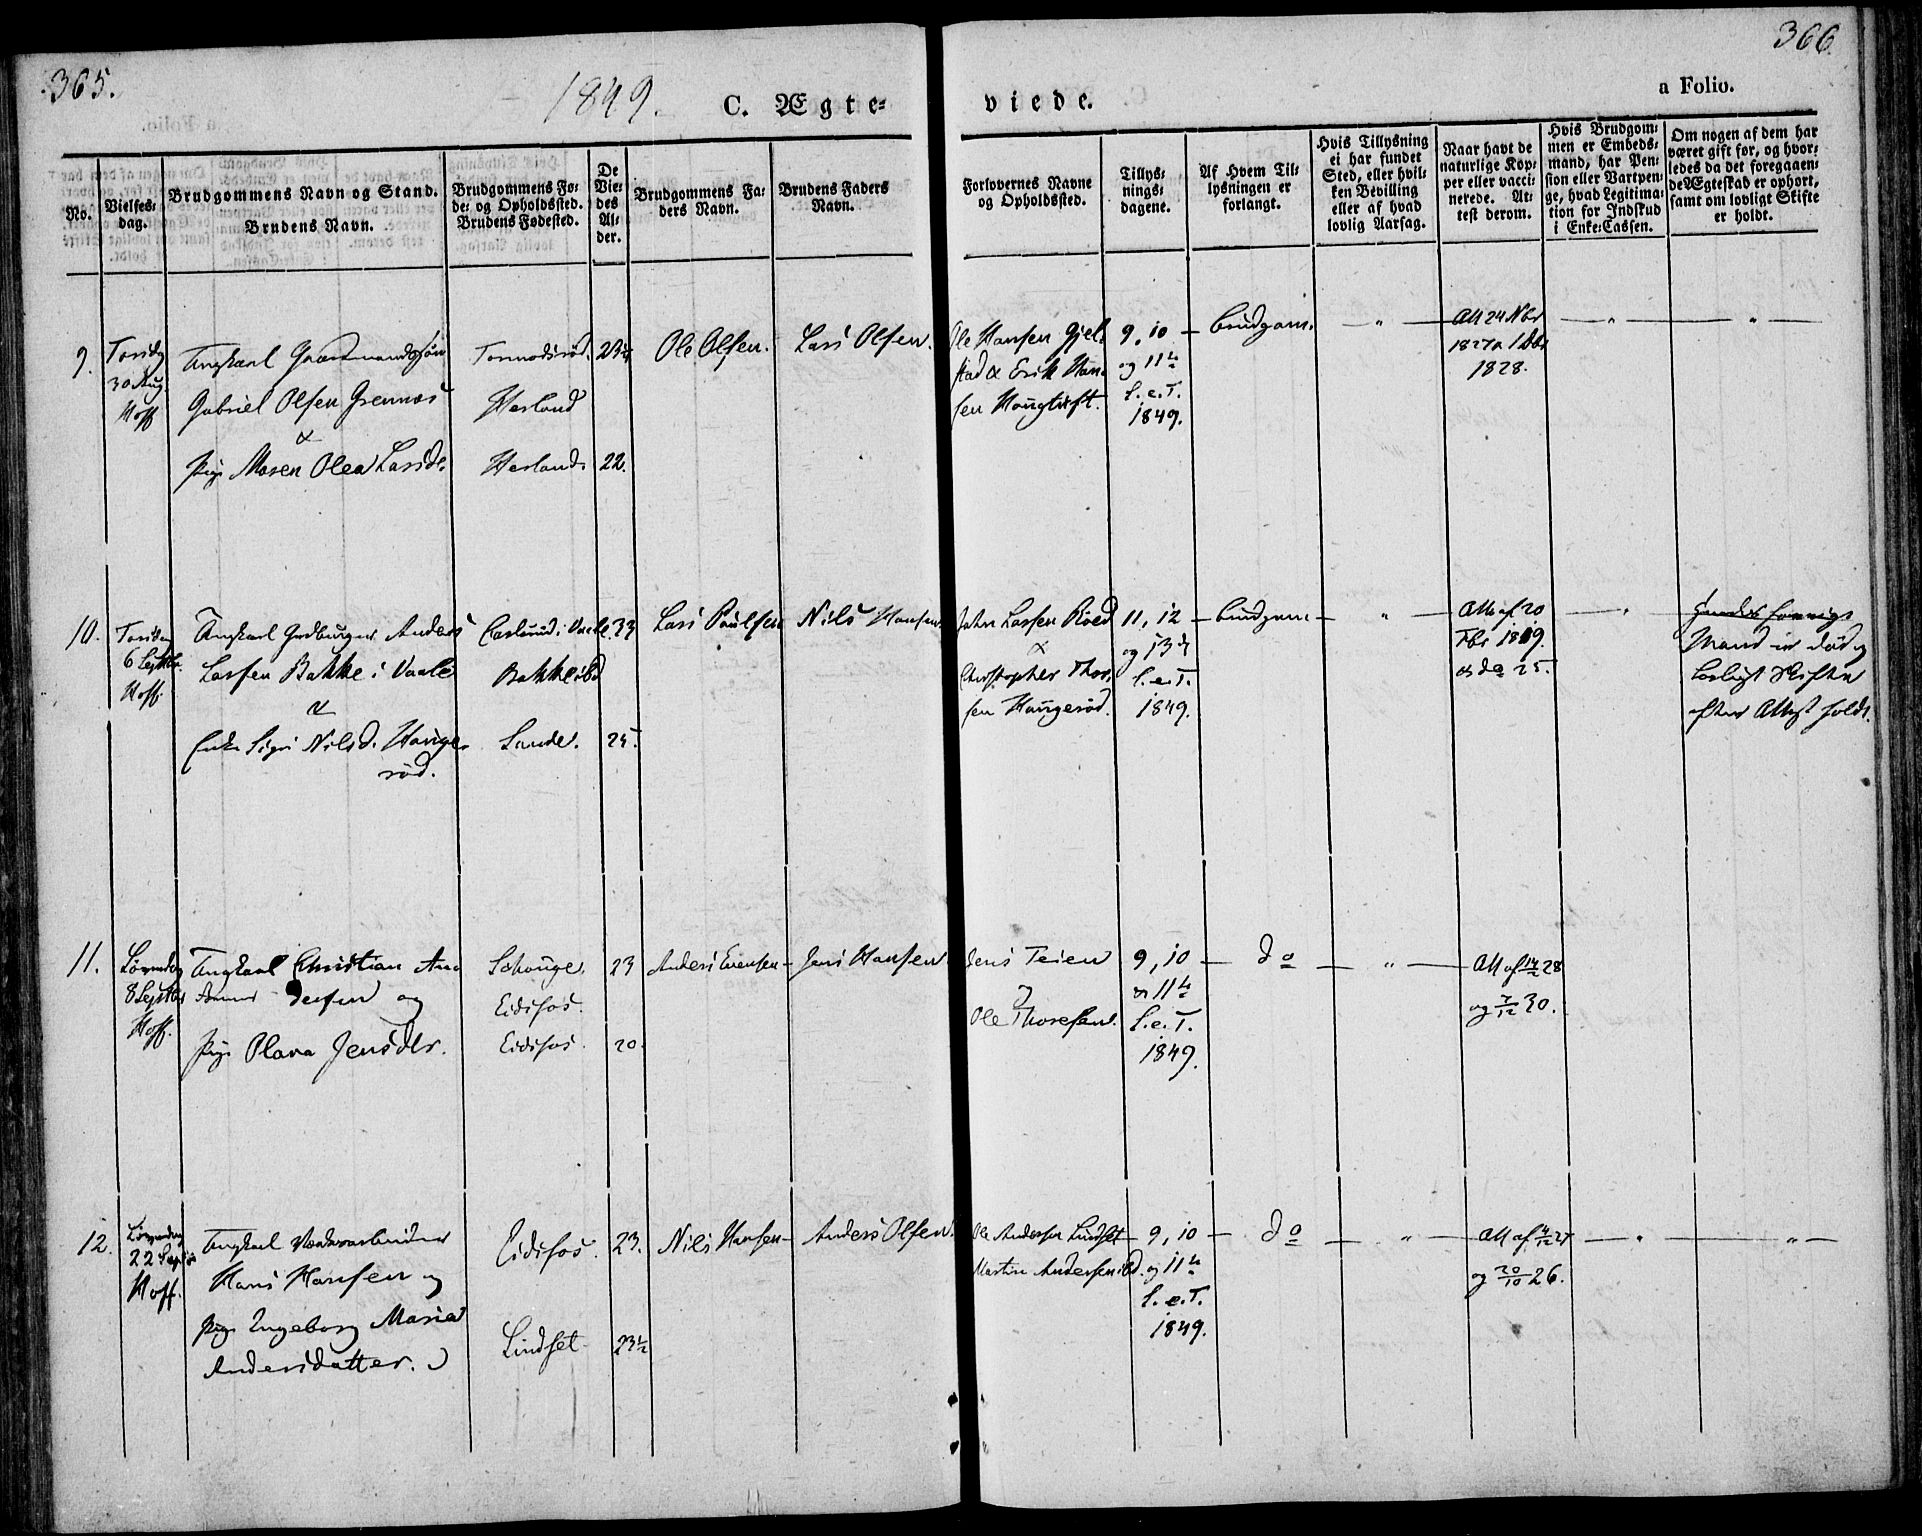 365.
1849.
C. Ægte-
viede.
366.
a Folio.
No.
Vielses-
dag.
Brudgommens Navn og Stand.
Brudens Navn.
Brudgommens Fø-
de- og Opholdssted.
Brudens Fødested.
De
Vie-
des
Al-
der.
Brudgommens Fa-
ders Navn.
Brudens Faders
Navn.
Forlovernes Navne
og Opholdssted.
Tillys-
nings-
dagene.
Af Hvem Til-
lysningen er
forlangt.
Hvis Tillysning
ei har fundet
Sted, eller hvil-
ken Bevilling
eller af hvad
lovlig Aarsag.
Naar havt de
naturlige Kop-
per eller vacci-
nerede. At-
test derom.
Hvis Brudgom-
men er Embeds-
mand, har Pen-
sion eller Vartpen-
ge, hvad Legitima-
tion for Indskud
i Enke-Cassen.
Om nogen af dem har
været gift før, og hvor-
ledes da det foregaaen-
de Ægteskab er ophørt,
samt om lovligt Skifte
er holdt.
9.
Torsdag
30 Aug
Hoff
Ungkarl Gaardmandssøn
Gabriel Olsen Grennæs
&
Pige Maren Olea Larsd.
Tormodsrød.
Herland
Herland.
23½
22.
Ole Olsen.
Lars Olsen.
Ole Hansen Gjel-
stad & Erik Han-
sen Haugtuft.
9, 10
og 11te
S. e. T.
1849.
Brudgom.
"
Att 24 Nbr
1827 & 1 Dbr
1828.
"
"
10.
Torsdag
6 Septbr.
Hoff.
Ungkarl Anders
Larsen Bakke i Vaale
&
Enke Nilsd. Hauge-
rød.
i Vaale
Sande.
33
25.
Lars Paulsen
Nils Hansen
John Larsen Röed
&
Christopher Thor-
sen Haugerød.
11, 12
og 13de
S. e. T.
1849.
Brudgom
"
Att af 20
1819.
& do 25.
"
Mand er død og
lovligt Skifte
efter Attest holdt.
11.
Løverdag
8 Septbr
Hoff.
Ungkarl Christian An-
dersen og
Pige Jensdtr.
Schouge.
Eidsfos.
Eidsfos.
23
20.
Anders Evensen
Jens Hansen
Jens Teien
og
Ole Thoresen.
9, 10
& 11te
S. e. T.
1849.
do
"
Att af 14/2 28
og 7/12 30.
12.
Løverdag
22 Sept
Hoff.
Ungkarl Værksarbeider
Hans Hansen og
Pige Ingeborg Maria
Andersdatter.
Eidsfos.
Lindset
23.
23½
Nils Hansen
Anders Olsen.
Ole Andersen Lindset
Martin Andersen ibd.
9, 10
og 11te
S. e. T.
1849.
do
"
Att af 4/12 27
og 20/10 26.
"
"